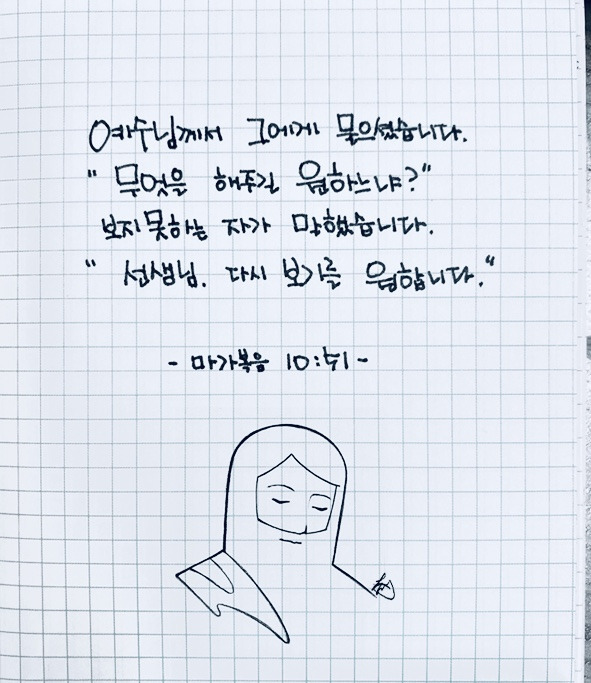 예수님께서 그에게 물으셨습니다.
" 무엇을 해주길 원하느냐?"
보지못하는 자가 말했습니다.
" 선생님. 다시 보기를 원합니다."
- 마가복음 10:51 -